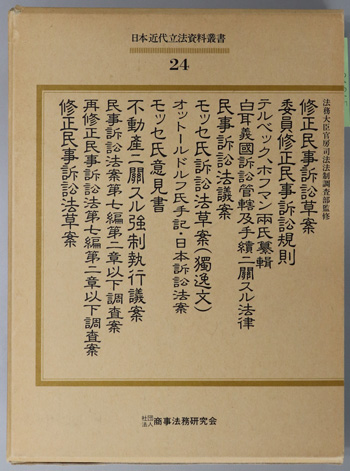 日本近代立法資料叢書
24
法務大臣官房司法法制調査部監修
修正民事訴訟草案
委員修正民事訴訟規則
テルベック、ホフマン両氏纂輯
白耳義國訴訟管轄及手續ニ關スル法律
民事訴訟法議案
モッセ氏訴訟法草案(獨逸文)
オットールドルフ氏手記・日本訴訟法案
モッセ氏意見書
不動產ニ關スル強制執行議案
民事訴訟法案第七編第二章以下調査案
再修正民事訴訟法第七編第二章以下調査案
修正民事訴訟法草案
社団法人 商事法務研究会